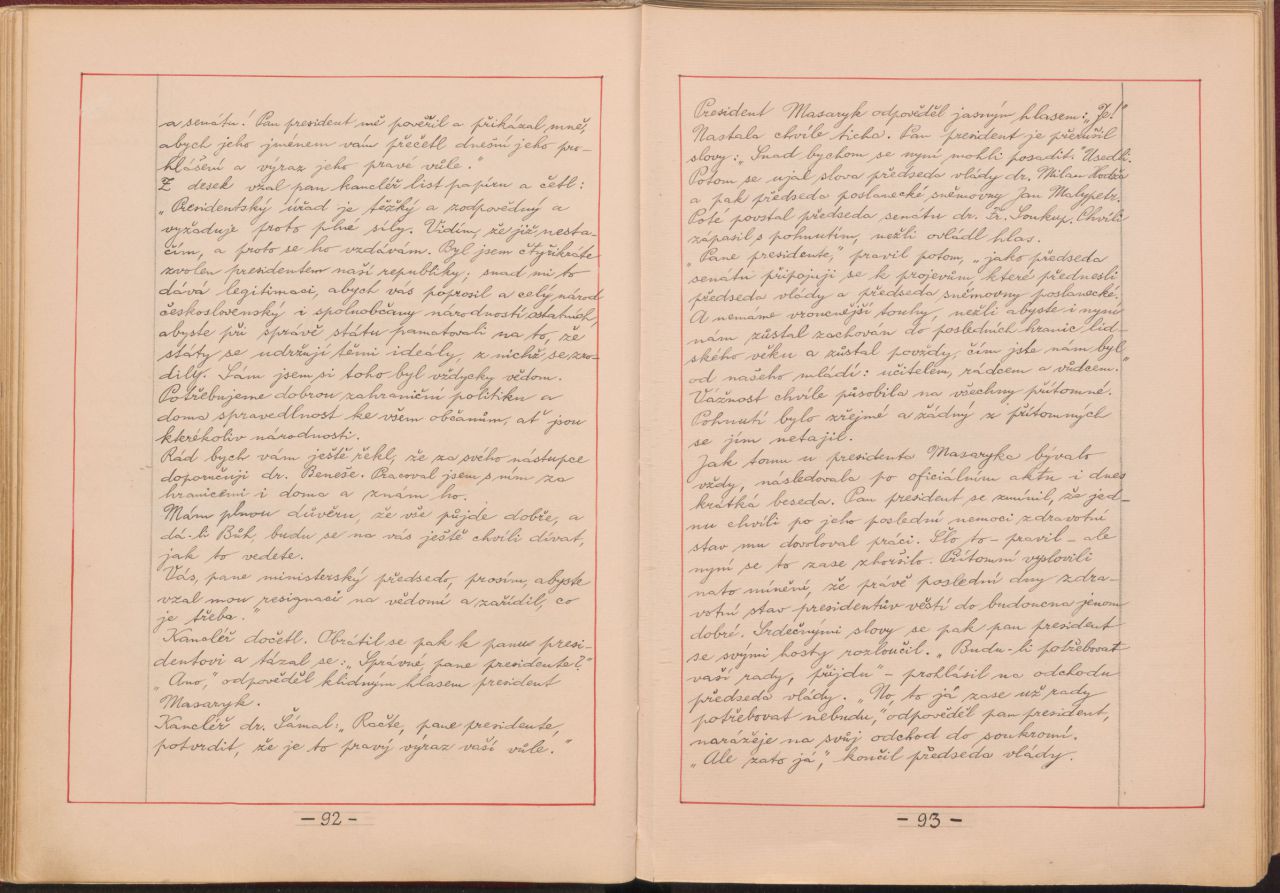 a senátu! Pan president mě pověřil a přikázal mně,
abych jeho jménem vám přečetl dnešní jeho pro-
hlášení a výraz jeho pravé vůle."
Z desek vzal pan kancléř list papíru a četl:
„Presidentský úřad je těžký a zodpovědný a
vyžaduje proto plné síly. Vidím, že již nesta-
čím, a proto se ho vzdávám. Byl jsem čtyřikráte
zvolen presidentem naší republiky; snad mi to
dává legitimaci, abych vás poprosil a celý národ
československý i spoluobčany národností ostatních,
abyste při správě státu pamatovali na to, že
státy se udržují těmi ideály, z nichž se zro-
dily. Sám jsem si toho byl vždycky vědom.
Potřebujeme dobrou zahraniční politiku a
doma spravedlnost ke všem občanům, ať jsou
kterékoliv národnosti.
Rád bych vám ještě řekl, že za svého nástupce
doporučuji dr. Beneše. Pracoval jsem s ním za
hranicemi i doma a znám ho.
Mám plnou důvěru, že vše půjde dobře, a
dá-li Bůh, budu se na vás ještě chvíli dívat,
jak to vedete.
Vás, pane ministerský předsedo, prosím, abyste
vzal mou resignaci na vědomí a zařídil, co
je třeba."
Kancléř dočetl. Obrátil se pak k panu presi-
dentovi a tázal se: „Správně, pane presidente?"
„Ano," odpověděl klidným hlasem president
Masaryk.
Kancléř dr. Šámal: „Račte, pane presidente,
potvrdit, že je to pravý výraz vaší vůle."
- 92 -
President Masaryk odpověděl jasným hlasem: „Je!"
Nastala chvíle ticha. Pan president je přerušil
slovy: „Snad bychom se nyní mohli posadit." Usedli.
Potom se ujal slova předseda vlády dr. Milan Hodža
a pak předseda poslanecké sněmovny Jan Malypetr.
Poté povstal předseda senátu dr. Fr. Soukup. Chvíli
zápasil s pohnutím, nežli ovládl hlas.
„Pane presidente," pravil potom, „jako předseda
senátu připojuji se k projevům, které přednesli
předseda vlády a předseda sněmovny poslanecké.
A nemáme vroucnější touhy, nežli abyste i nyní
nám zůstal zachován do posledních hranic lid-
ského věku a zůstal povždy, čím jste nám byl
od našeho mládí: učitelem, rádcem a vůdcem."
Vážnost chvíle působila na všechny přítomné.
Pohnutí bylo zřejmé a žádný z přítomných
se jím netajil.
Jak tomu u presidenta Masaryka bývalo
vždy, následovala po oficiálním aktu i dnes
krátká beseda. Pan president se zmínil, že jed-
nu chvíli po jeho poslední nemoci zdravotní
stav mu dovoloval práci. Šlo to - pravil - ale
nyní se to zase zhoršilo. Přítomní vyslovili
na to mínění, že právě poslední dny zdra-
votní stav presidentův věstí do budoucna jenom
dobré. Srdečnými slovy se pak pan president
se svými hosty rozloučil. „Budu-li potřebovat
vaší rady, přijdu" - prohlásil na odchodu
předseda vlády. „No, to já zase už rady
potřebovat nebudu," odpověděl pan president,
narážeje na svůj odchod do soukromí.
„Ale zato já," končil předseda vlády.
- 93 -